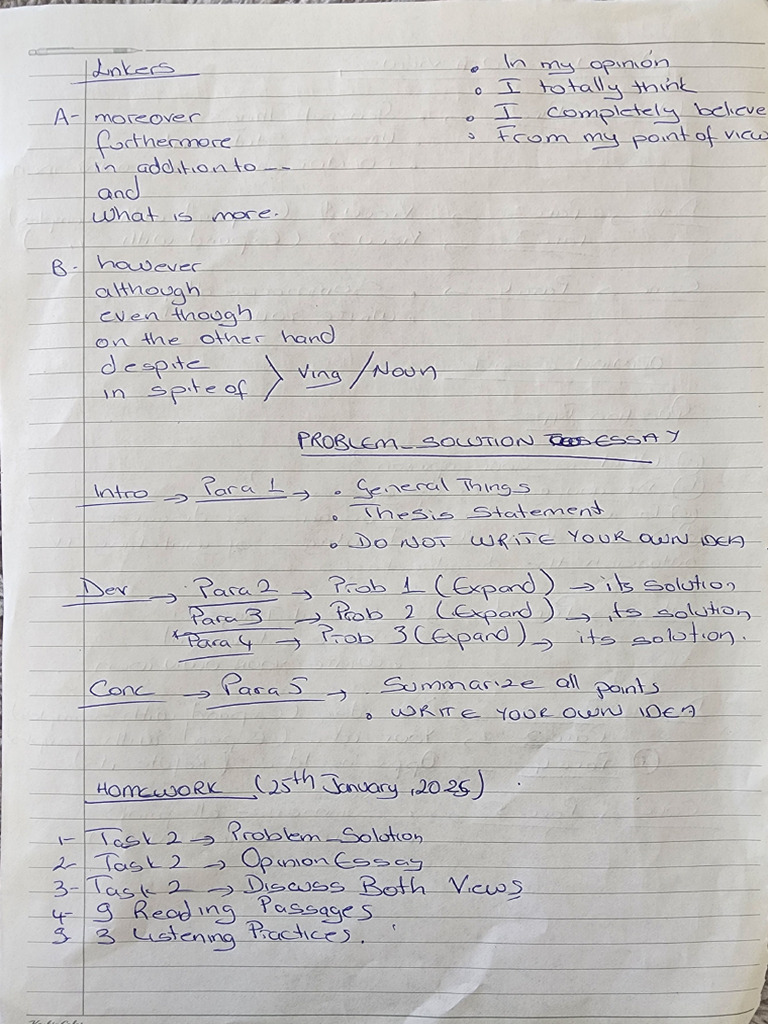 Linkers
• In my opinion
• I totally think
• I completely believe
• From my point of view
A- moreover
furthermore
in addition to ---
and
what is more.
B- however
although
even though
on the other hand
despite
in spite of } Ving / Noun
PROBLEM_SOLUTION ESSAY
Intro → Para 1 → • General Things
• Thesis Statement
• DO NOT WRITE YOUR OWN IDEA
Dev → Para 2 → Prob 1 (Expand) → its solution
Para 3 → Prob 2 (Expand) → its solution
Para 4 → Prob 3 (Expand) → its solution.
Conc → Para 5 → Summarize all points
• WRITE YOUR OWN IDEA
HOMEWORK (25th January, 2025)
1- Task 2 → Problem_Solution
2- Task 2 → Opinion Essay
3- Task 2 → Discuss Both Views
4- 9 Reading Passages
5- 3 Listening Practices.